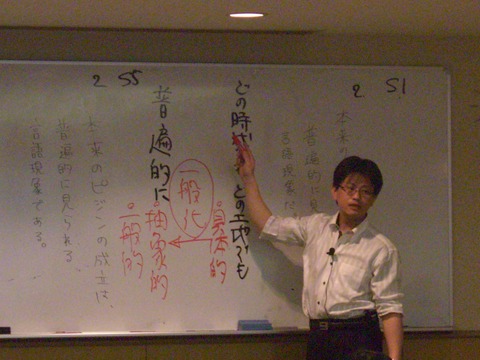 2 S1
本来の
普遍的に見
る言語現象だ
どの時代 どの土地でも
・具体的
一般化
普遍的に
・抽象的
・一般的
2 S5
本来のピジンの成立は、
普遍的に見られる
言語現象である。